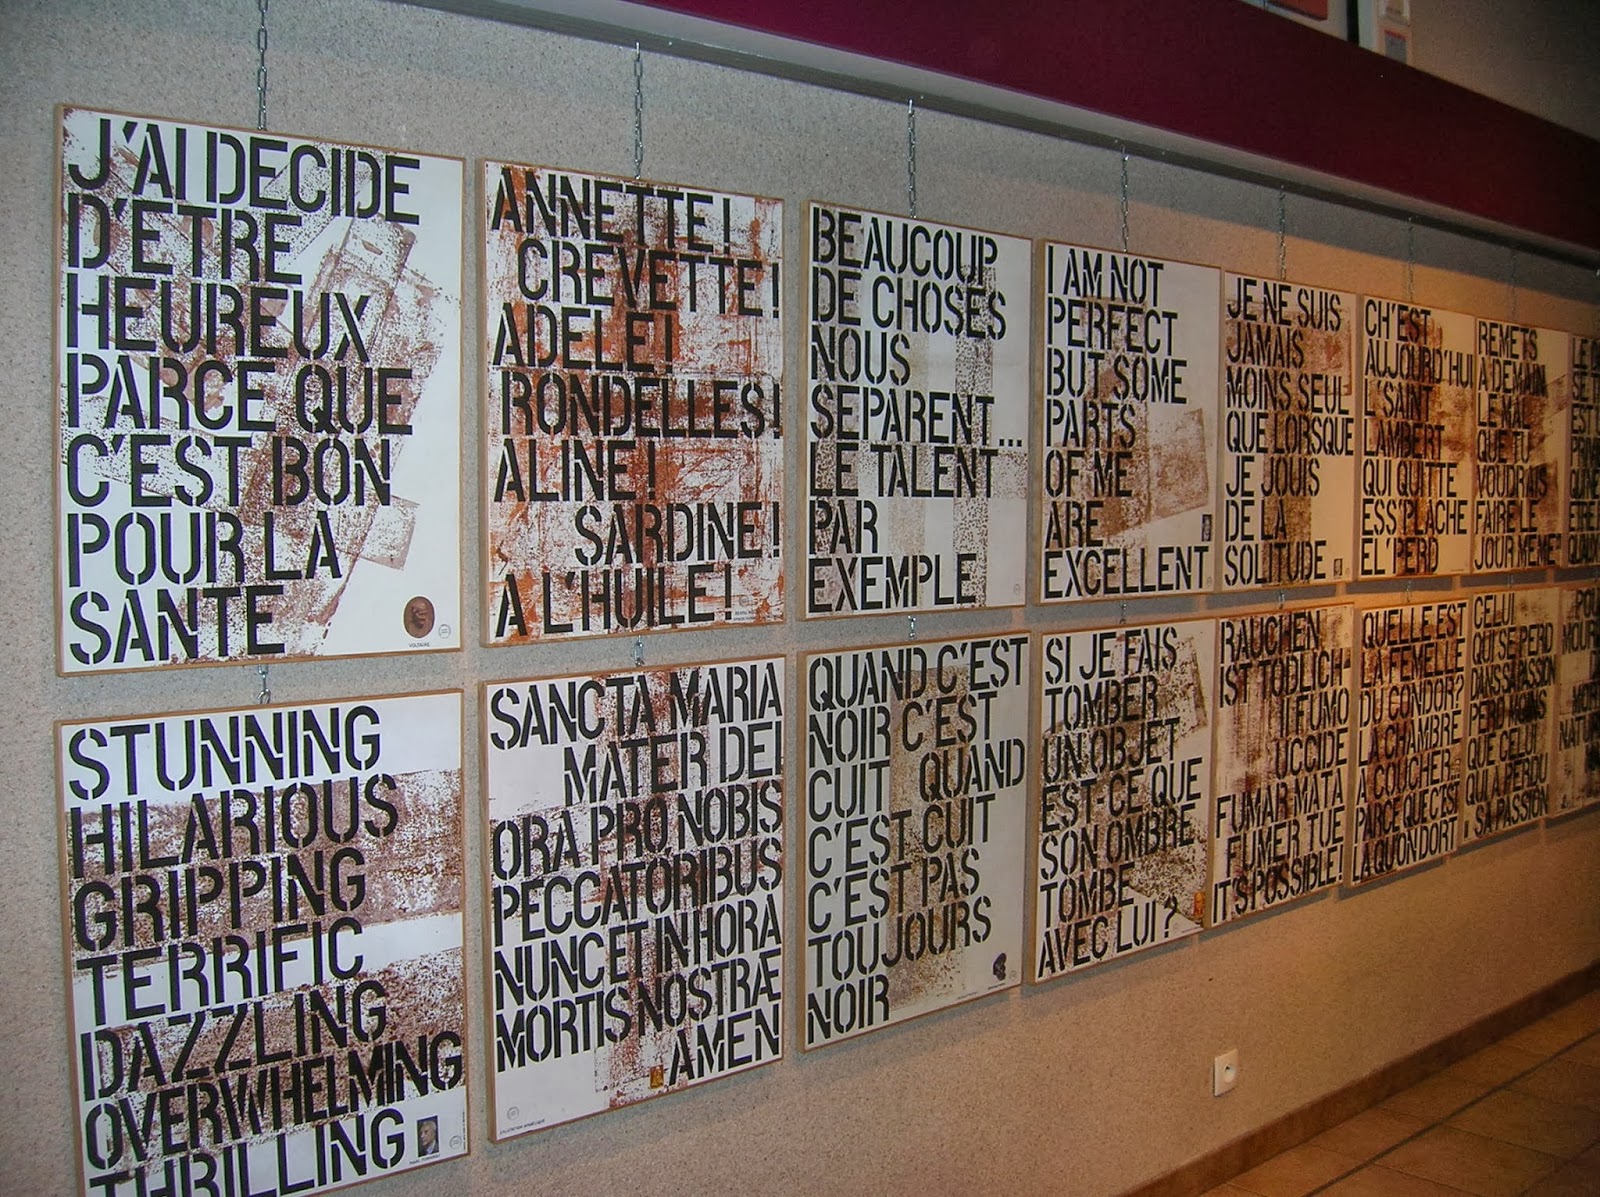 J'AI DECIDE
D'ETRE
HEUREUX
PARCE QUE
C'EST BON
POUR LA
SANTE
VOLTAIRE
ANNETTE!
CREVETTE!
ADELE!
RONDELLES!
ALINE!
SARDINE!
A L'HUILE!
BEAUCOUP
DE CHOSES
NOUS
SEPARENT...
LE TALENT
PAR
EXEMPLE
I AM NOT
PERFECT
BUT SOME
PARTS
OF ME
ARE
EXCELLENT
JE NE SUIS
JAMAIS
MOINS SEUL
QUE LORSQUE
JE JOUIS
DE LA
SOLITUDE
CH'EST
AUJOURD'HUI
L'SAINT
LAMBERT
QUI QUITTE
ESS'PLACHE
EL'PERD
REMETS
A DEMAIN
LE MAL
QUE TU
VOUDRAIS
FAIRE LE
JOUR MEME
STUNNING
HILARIOUS
GRIPPING
TERRIFIC
DAZZLING
OVERWHELMING
THRILLING
SANCTA MARIA
MATER DEI
ORA PRO NOBIS
PECCATORIBUS
NUNC ET IN HORA
MORTIS NOSTRÆ
AMEN
QUAND C'EST
NOIR C'EST
CUIT QUAND
C'EST CUIT
C'EST PAS
TOUJOURS
NOIR
SI JE FAIS
TOMBER
UN OBJET
EST-CE QUE
SON OMBRE
TOMBE
AVEC LUI?
RAUCHEN
IST TÖDLICH
IL FUMO
UCCIDE
FUMAR MATA
FUMER TUE
IT'S POSSIBLE!
QUELLE EST
LA FEMELLE
DU CONDOR?
LA CHAMBRE
A COUCHER...
PARCE QUE C'EST
LA QU'ON DORT
CELUI
QUI SE PERD
DANS SA PASSION
PERD MOINS
QUE CELUI
QUI A PERDU
SA PASSION